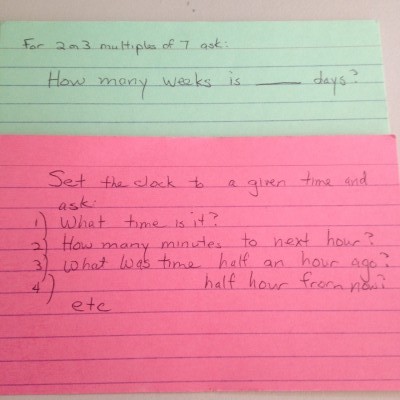 For 2 or 3 multiples of 7 ask:
How many weeks is ___ days?
Set the clock to a given time and
ask:
1) What time is it?
2) How many minutes to next hour?
3) What was time half an hour ago?
4) half hour from now?
etc